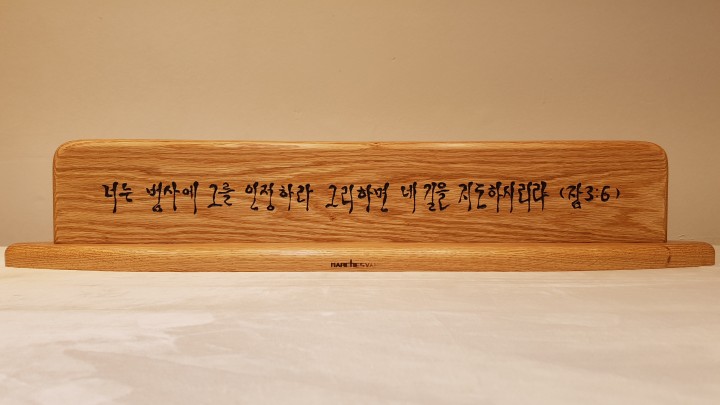 너는 범사에 그를 인정하라 그리하면 네 길을 지도하시리라 (잠3:6)